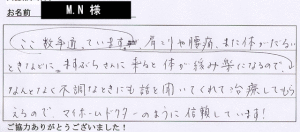 お名前 M.N 様
ここ数年通っています。肩こりや腰痛、また体がだるい
ときなどに、ますぶちさんに来ると体が緩み楽になるので、
なんとなく不調なときにも話を聞いてくれて治療してもら
えるので、マイホームドクターのように信頼しています!
ご協力ありがとうございました!